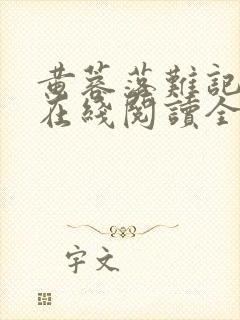 黄蓉落難記
在綫閱讀全
字文